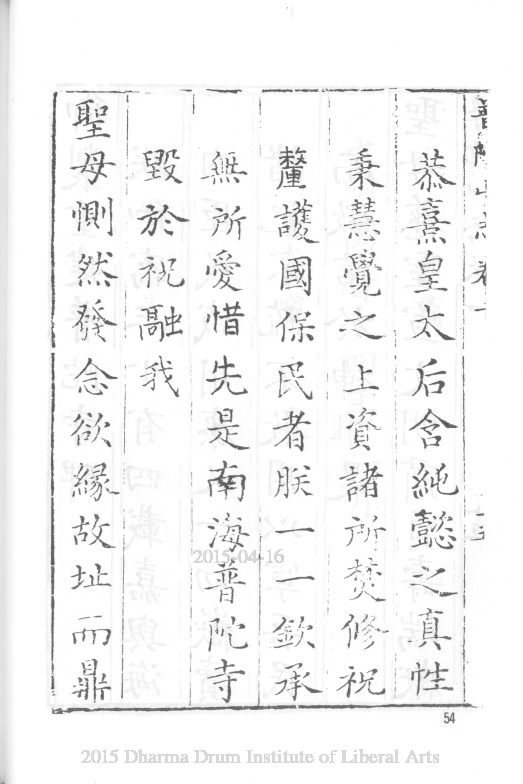 普陀山志卷一
恭熹皇太后含純懿之真性
秉慧覺之上資諸所焚修祝
釐護國保民者朕一一欽承
無所愛惜先是南海普陀寺
毀於祝融我
聖母惻然發念欲緣故址而鼎
54
2015-04-16
2015 Dharma Drum Institute of Liberal Arts